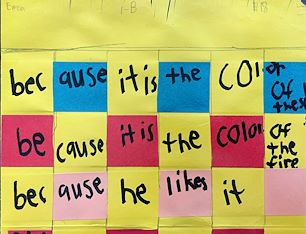 because it is the color of these
because it is the color of the fire
because he likes it